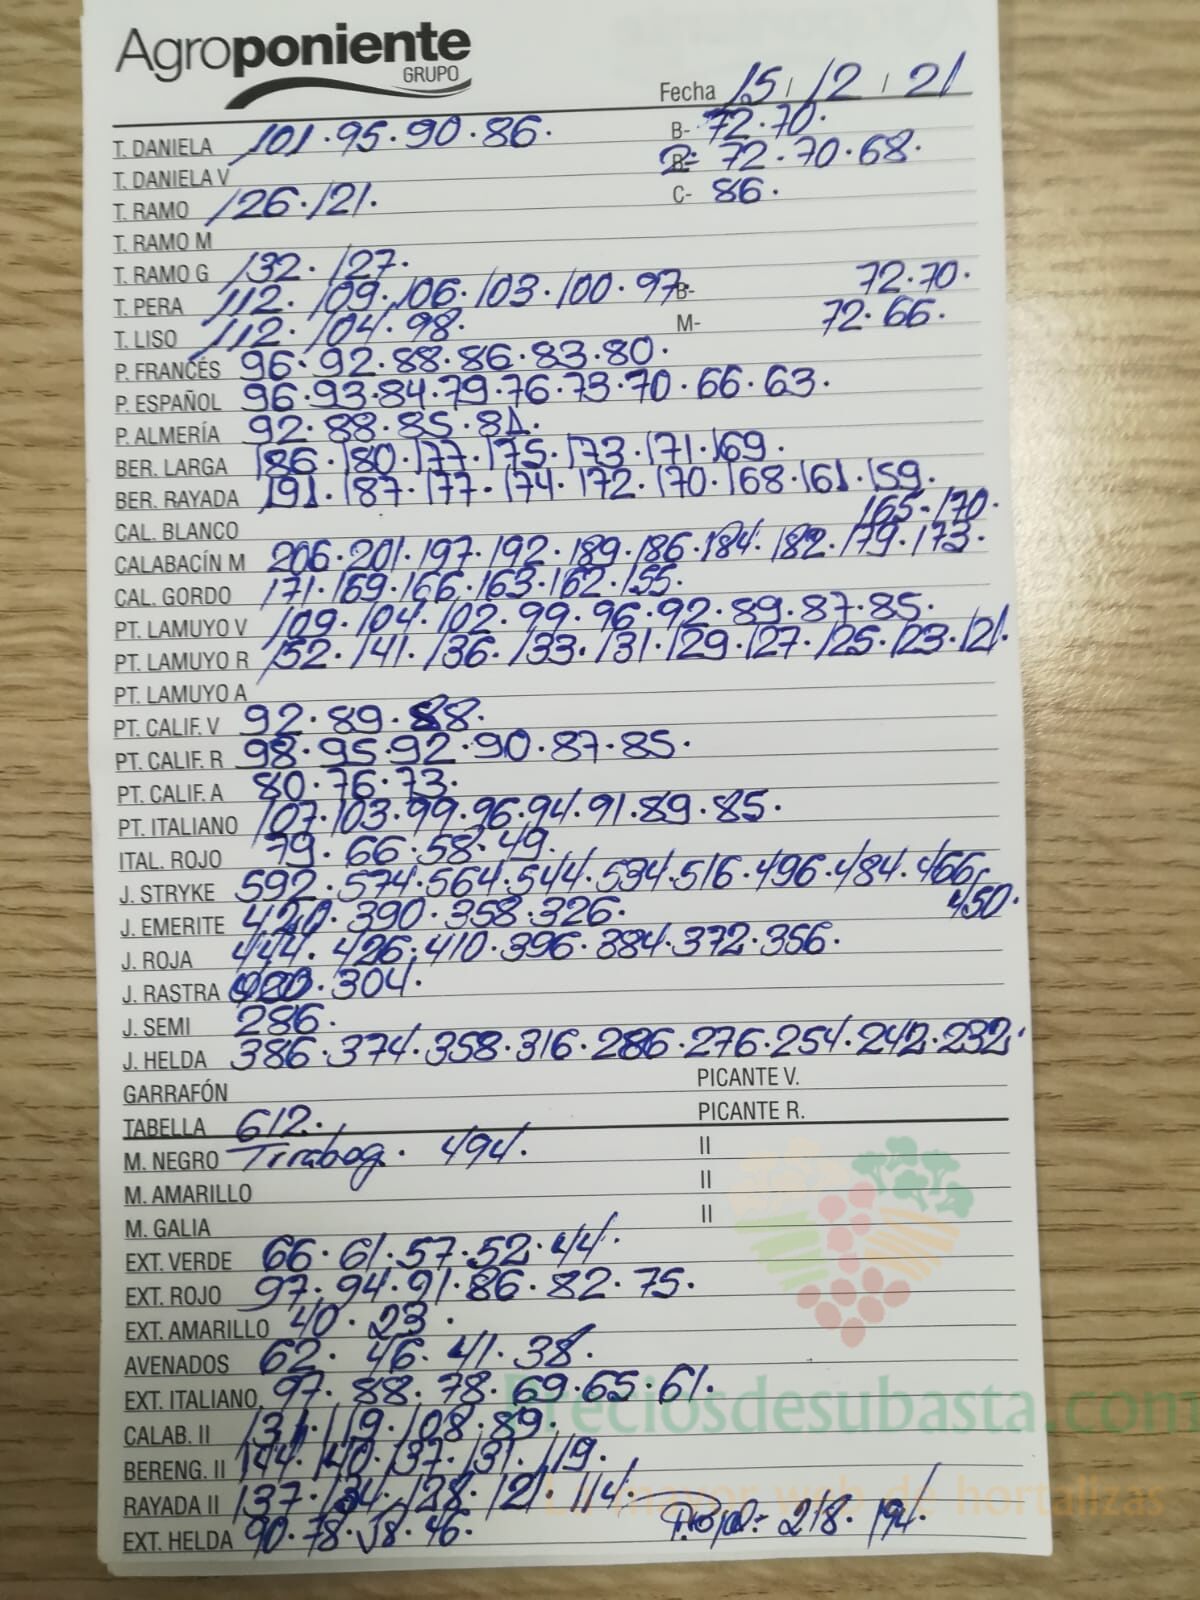 Agroponiente
GRUPO
Fecha 15 / 12 / 21
T. DANIELA 101 · 95 · 90 · 86 · B- 72 · 70 ·
T. DANIELA V 2- 72 · 70 · 68 ·
T. RAMO 126 · 121 · C- 86 ·
T. RAMO M
T. RAMO G 132 · 127 ·
T. PERA 112 · 109 · 106 · 103 · 100 · 97 · B- 72 · 70 ·
T. LISO 112 · 104 · 98 · M- 72 · 66 ·
P. FRANCÉS 96 · 92 · 88 · 86 · 83 · 80 ·
P. ESPAÑOL 96 · 93 · 84 · 79 · 76 · 73 · 70 · 66 · 63 ·
P. ALMERÍA 92 · 88 · 85 ·
BER. LARGA 186 · 180 · 177 · 175 · 173 · 171 · 169 ·
BER. RAYADA 191 · 187 · 177 · 174 · 172 · 170 · 168 · 161 · 159 ·
CAL. BLANCO 165 · 170 ·
CALABACÍN M 206 · 201 · 197 · 192 · 189 · 186 · 184 · 182 · 179 · 173 ·
CAL. GORDO 171 · 169 · 166 · 163 · 162 · 155 ·
PT. LAMUYO V 109 · 104 · 102 · 99 · 96 · 92 · 89 · 87 · 85 ·
PT. LAMUYO R 152 · 141 · 136 · 133 · 131 · 129 · 127 · 125 · 123 · 121 ·
PT. LAMUYO A
PT. CALIF. V 92 · 89 · 88 ·
PT. CALIF. R 98 · 95 · 92 · 90 · 87 · 85 ·
PT. CALIF. A 80 · 76 · 73 ·
PT. ITALIANO 107 · 103 · 99 · 96 · 94 · 91 · 89 · 85 ·
ITAL. ROJO 79 · 66 · 58 · 49 ·
J. STRYKE 592 · 574 · 564 · 544 · 534 · 516 · 496 · 484 · 466 ·
J. EMERITE 420 · 390 · 358 · 326 · 450 ·
J. ROJA 444 · 426 · 410 · 396 · 384 · 372 · 356 ·
J. RASTRA 304 ·
J. SEMI 286 ·
J. HELDA 386 · 374 · 358 · 316 · 286 · 276 · 254 · 242 · 232 ·
GARRAFÓN PICANTE V.
TABELLA 612 · PICANTE R.
M. NEGRO Tirabeq · 494 · II
M. AMARILLO II
M. GALIA II
EXT. VERDE 66 · 61 · 57 · 52 · 44 ·
EXT. ROJO 97 · 94 · 91 · 86 · 82 · 75 ·
EXT. AMARILLO 40 · 23 ·
AVENADOS 62 · 46 · 41 · 38 ·
EXT. ITALIANO 97 · 88 · 78 · 69 · 65 · 61 ·
Preciosdesubasta.com
CALAB. II 131 · 119 · 108 · 89 ·
BERENG. II 144 · 140 · 137 · 131 · 119 ·
RAYADA II 137 · 134 · 128 · 121 · 114 ·
La mayor web de hortalizas
EXT. HELDA 90 · 78 · 58 · 46 · Roja- 218 · 194 ·